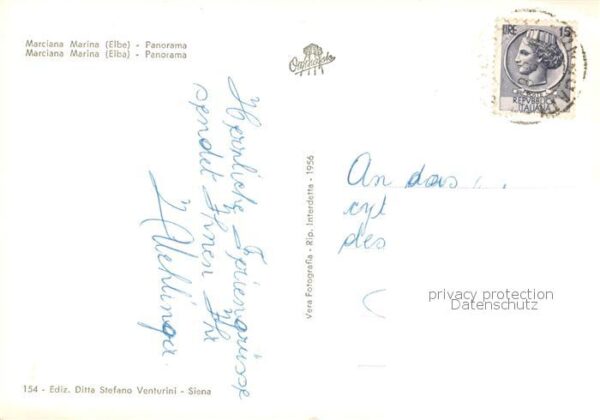 Marciana Marina (Elbe) - Panorama
Marciana Marina (Elba) - Panorama
LIRE 15
REPVBBLICA
ITALIANA
Herrliche Feriengrüsse
sendet Ihnen Ihr
Uehlinger.
Vera Fotografia - Rip. Interdetta - 1956
An das
des
privacy protection
Datenschutz
154 - Ediz. Ditta Stefano Venturini - Siena